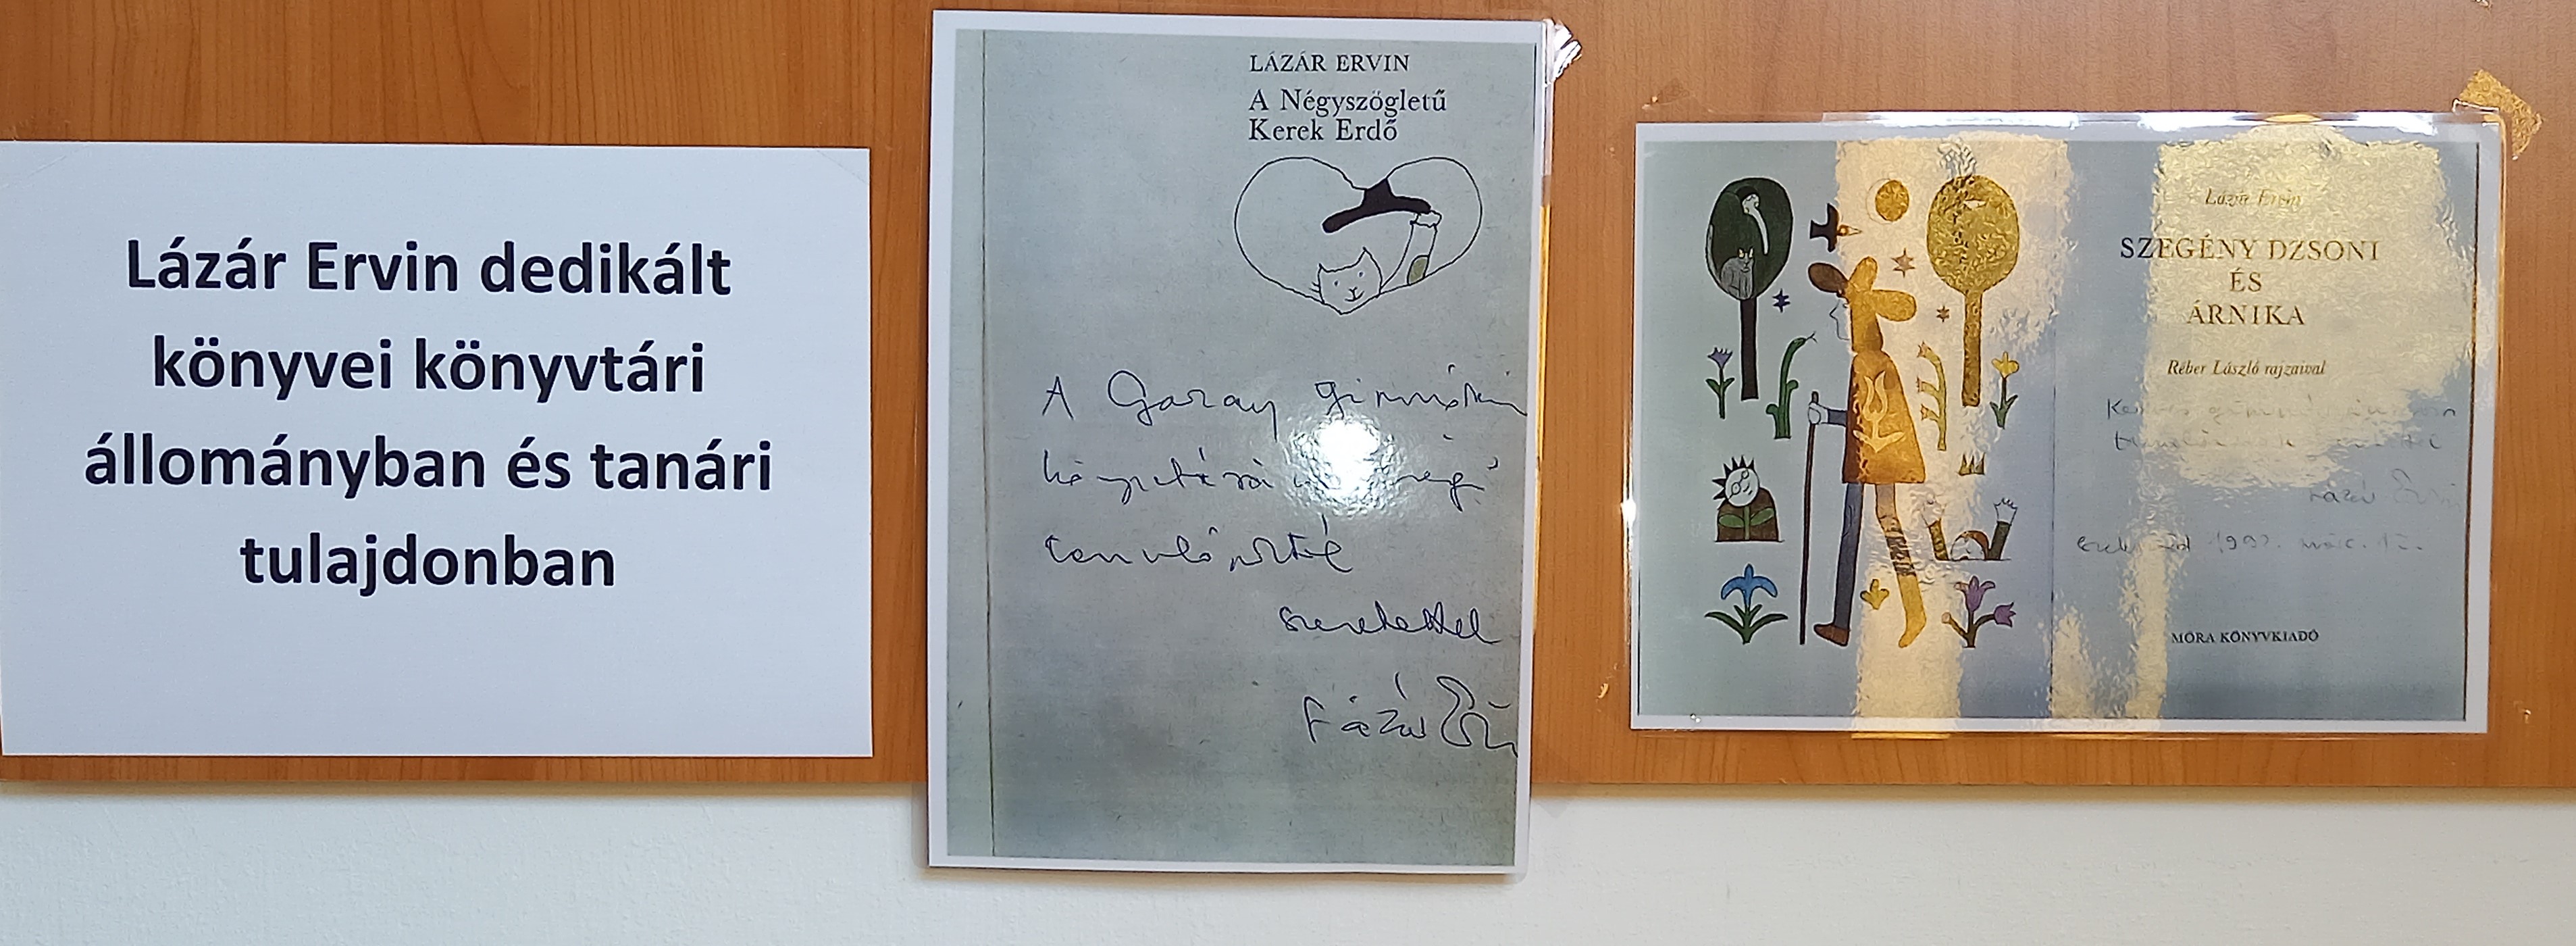 Lázár Ervin dedikált
könyvei könyvtári
állományban és tanári
tulajdonban
LÁZÁR ERVIN
A Négyszögletű
Kerek Erdő
A Garay
szeretettel
Lázár Ervin
Lázár Ervin
SZEGÉNY DZSONI
ÉS
ÁRNIKA
Réber László rajzaival
Lázár Ervin
1992.
MÓRA KÖNYVKIADÓ